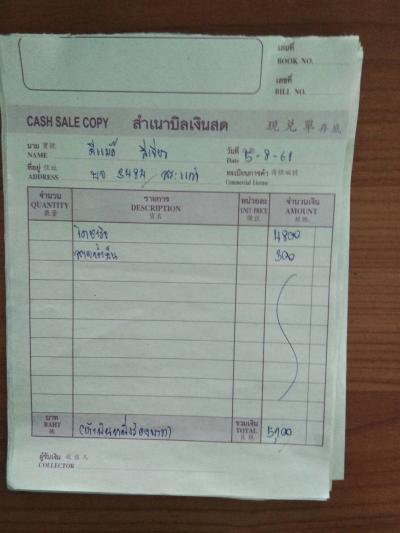 เล่มที่
BOOK NO.
เลขที่
BILL NO.
CASH SALE COPY สำเนาบิลเงินสด 現兌單存底
นาม 寶號
NAME สีเขียว
วันที่
Date 5-8-61
ที่อยู่ 住址
ADDRESS 3484 สระแก้ว
ทะเบียนการค้า 商標編號
Commercial License
จำนวน
QUANTITY
數量
รายการ
DESCRIPTION
貨名
หน่วยละ
UNIT PRICE
價目
จำนวนเงิน
AMOUNT
銀碼
ไดชาร์จ 4800
300
บาท
BAHT
銖
(ห้าพันหนึ่งร้อยบาท)
รวมเงิน
TOTAL 5,100
共銀
ผู้รับเงิน 收銀人
COLLECTOR